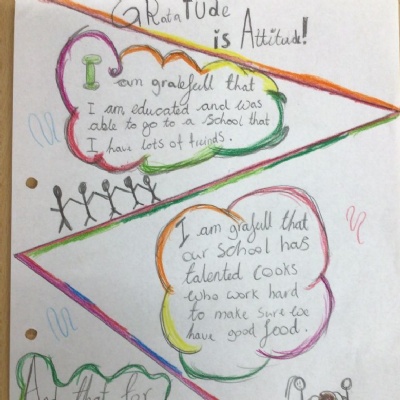 GRataTUde
is Attitude!
I am gratefull that
I am educated and was
able to go to a school that
I have lots of freinds.
I am grafull that
our school has
talented cooks
who work hard
to make sure we
have good food.
And that for